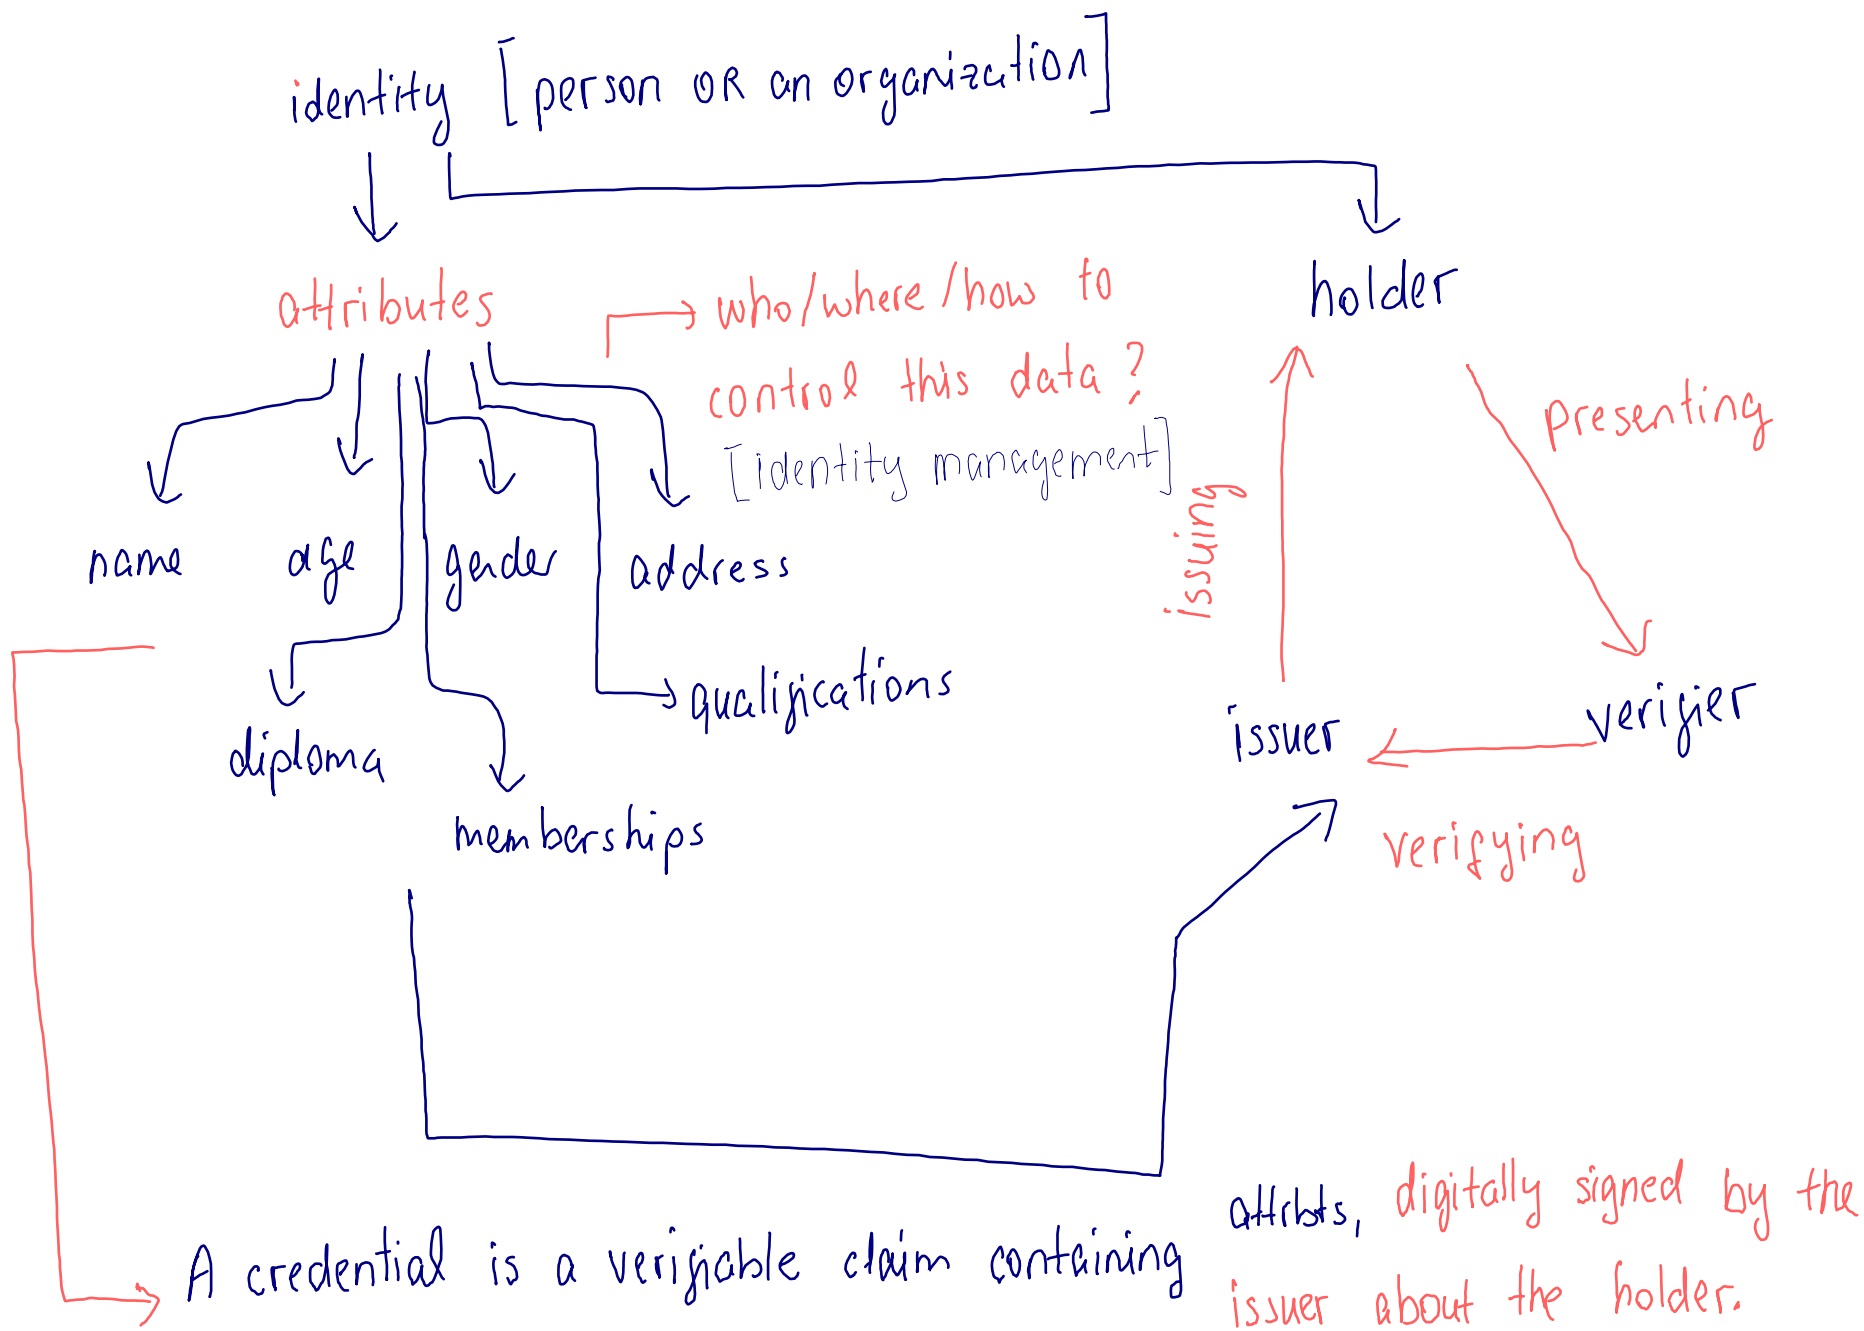 identity [person OR an organization]
attributes
who/where/how to
control this data?
[identity management]
holder
presenting
issuing
name age gender address
diploma
qualifications
memberships
issuer
verifier
verifying
A credential is a verifiable claim containing attrbts, digitally signed by the
issuer about the holder.